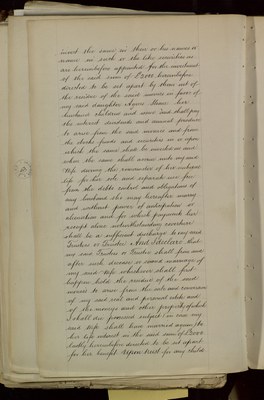 invest the same in their or his names or
name in such or the like securities as
are hereinbefore appointed for the investment
of the said sum of £2000 hereinbefore
directed to be set apart by them out of
the residue of the said moneys in favor of
my said daughter Agnes her
husband children and issue and shall pay
the interest dividends and annual produce
to arise from the said moneys and from
the stocks funds and securities in or upon
which the same shall be invested as and
when the same shall accrue unto my said
Wife during the remainder of her natural
life for her sole and separate use free
from the debts control and obligations of
any husband she may hereafter marry
and without power of anticipation or
alienation and for which payments her
receipt alone notwithstanding coverture
shall be a sufficient discharge to my said
Trustees or Trustee And I declare that
my said Trustees or Trustee shall from and
after such decease or second marriage of
my said Wife whichever shall first
happen hold the residue of the said
moneys to arise from the sale and conversion
of my said real and personal estate and
of the moneys and other property of which
I shall die possessed subject in case my
said Wife shall have married again to
her life interest in the said sum of £2000
lastly hereinbefore directed to be set apart
for her benefit Upon trust for my child